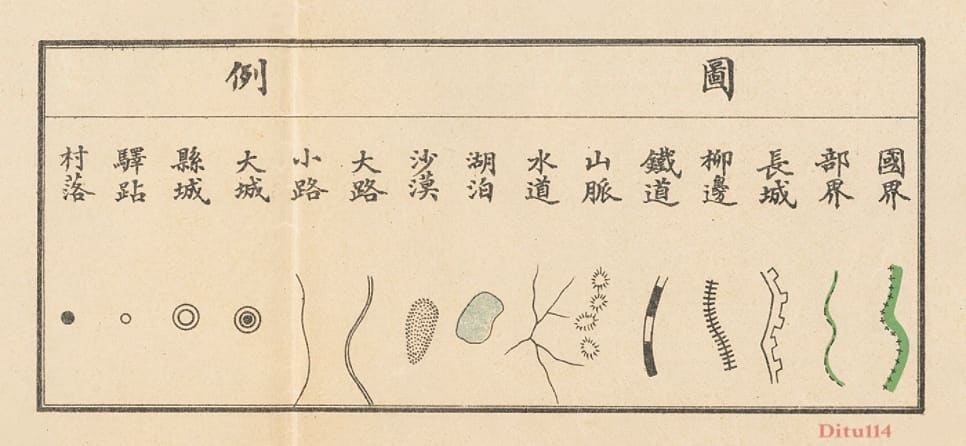 圖例
國界
部界
長城
柳邊
鐵道
山脈
水道
湖泊
沙漠
大路
小路
大城
縣城
驛跕
村落
Ditu114